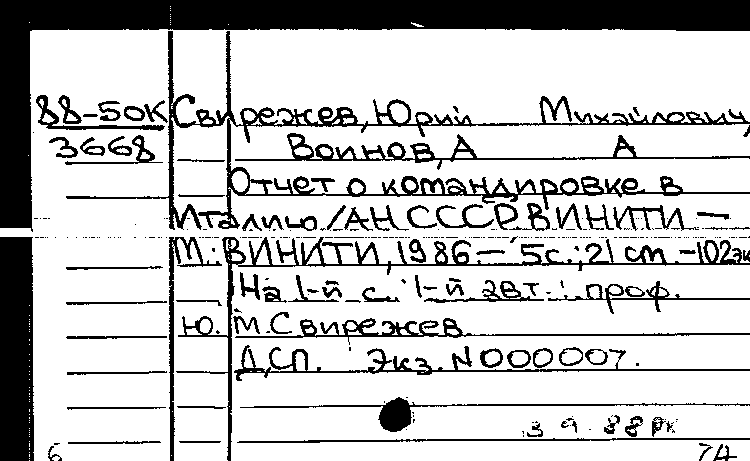 88-50К Свирежев, Юрий Михайлович,
3668 Воинов, А А
Отчет о командировке в
Италию / АН СССР ВИНИТИ —
М.: ВИНИТИ, 1986. — 5с.; 21 cm. -102эк
На 1-й с. 1-й авт.: проф.
Ю. М. Свирежев.
Д,СП. Экз. N000007.
3 9 88 РК
6 74